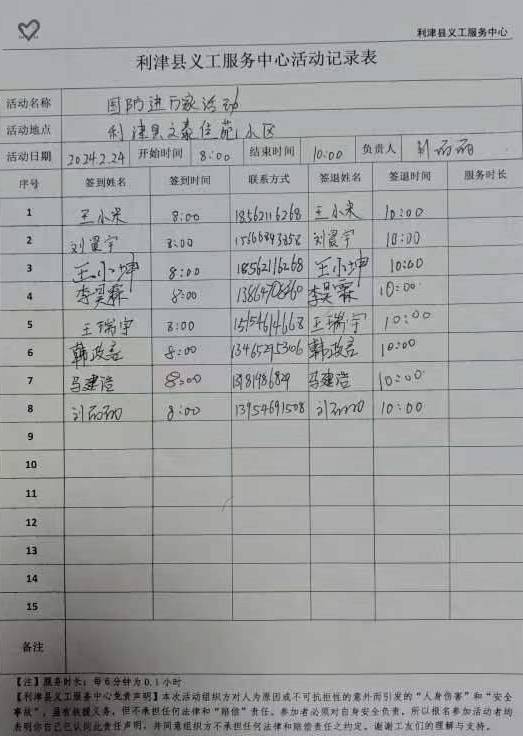 利津县义工服务中心
利津县义工服务中心活动记录表
活动名称 国防进万家活动
活动地点 利津县文泰佳苑小区
活动日期 2024.2.24 开始时间 8:00 结束时间 10:00 负责人 刘丽丽
序号 签到姓名 签到时间 联系方式 签退姓名 签退时间 服务时长
1 王小米 8:00 18562116268 王小米 10:00
2 刘置宇 8:00 刘置宇 10:00
3 王小坤 8:00 18562116268 王小坤 10:00
4 李昊霖 8:00 李昊霖 10:00
5 王瑞宇 8:00 王瑞宇 10:00
6 韩政君 8:00 13465295306 韩政君 10:00
7 马建浩 8:00 马建浩 10:00
8 8:00 13954691508 10:00
9
10
11
12
13
14
15
备注
【注】服务时长:每6分钟为0.1小时
【利津县义工服务中心免责声明】本次活动组织方对人为原因或不可抗拒性的意外而引发的“人身伤害”和“安全
事故”,虽有救援义务,但不承担任何法律和“赔偿”责任。参加者必须对自身安全负责。所以报名参加活动者均
表明你自己已认同此责任声明,并同意组织方不承担任何法律和赔偿责任之约定。谢谢工友们的理解与支持。